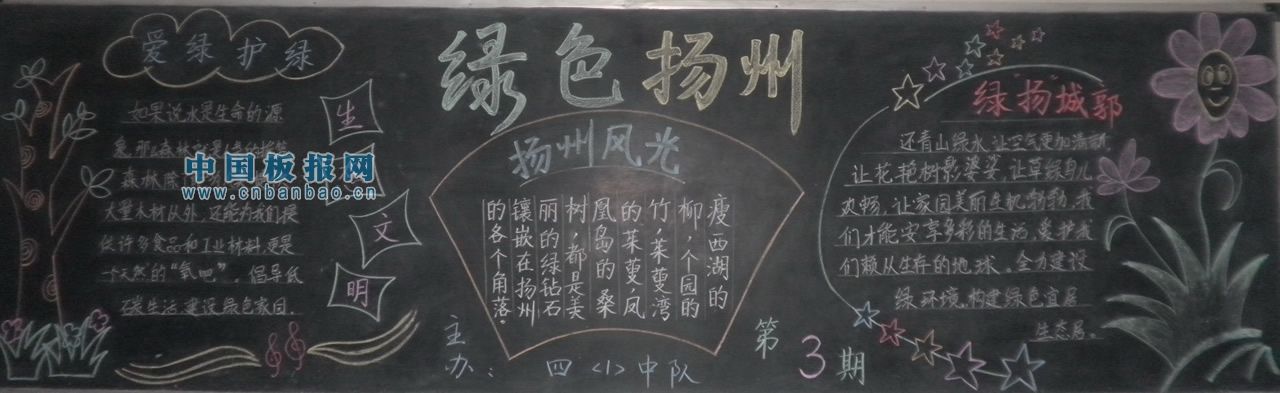 绿色扬州
爱绿护绿
如果说水是生命的源
泉,那
森林除
大量木材以外,还能为我们提
供许多食品和工业材料,更是
一个天然的“氧吧”,倡导低
碳生活,建设绿色家园.
生
文
明
中国板报网
www.cnbanbao.cn
扬州风光
瘦西湖的
柳,个园的
竹,茱萸湾
的茱萸,凤
凰岛的桑
树,都是美
丽的绿钻石
镶嵌在扬州
的各个角落。
主办:四<1>中队
第3期
绿“扬”城郭
还青山绿水,让空气更加清新,
让花艳树影婆娑,让草绿鸟儿
欢畅,让家园美丽生机勃勃,我
们才能安享多彩的生活,爱护我
们赖以生存的地球。全力建设
绿环境,构建绿色宜居
生态居。